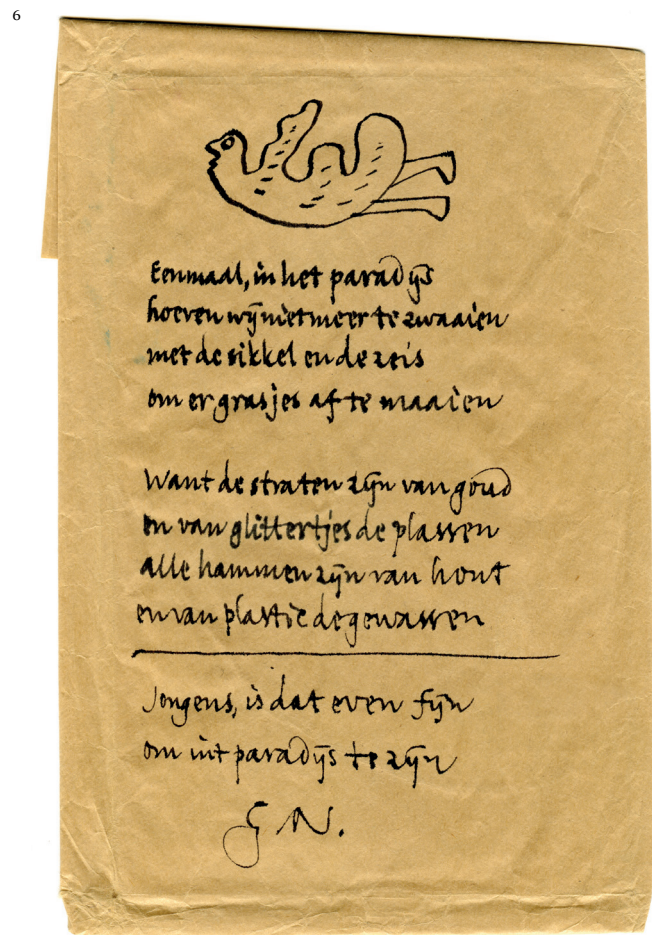 6
Eenmaal, in het paradijs
hoeven wij niet meer te zwaaien
met de sikkel en de zeis
om er grasjes af te maaien
Want de straten zijn van goud
en van glittertjes de plassen
alle hammen zijn van hout
en van plastic de gewassen
Jongens, is dat even fijn
om int paradijs te zijn
G N.